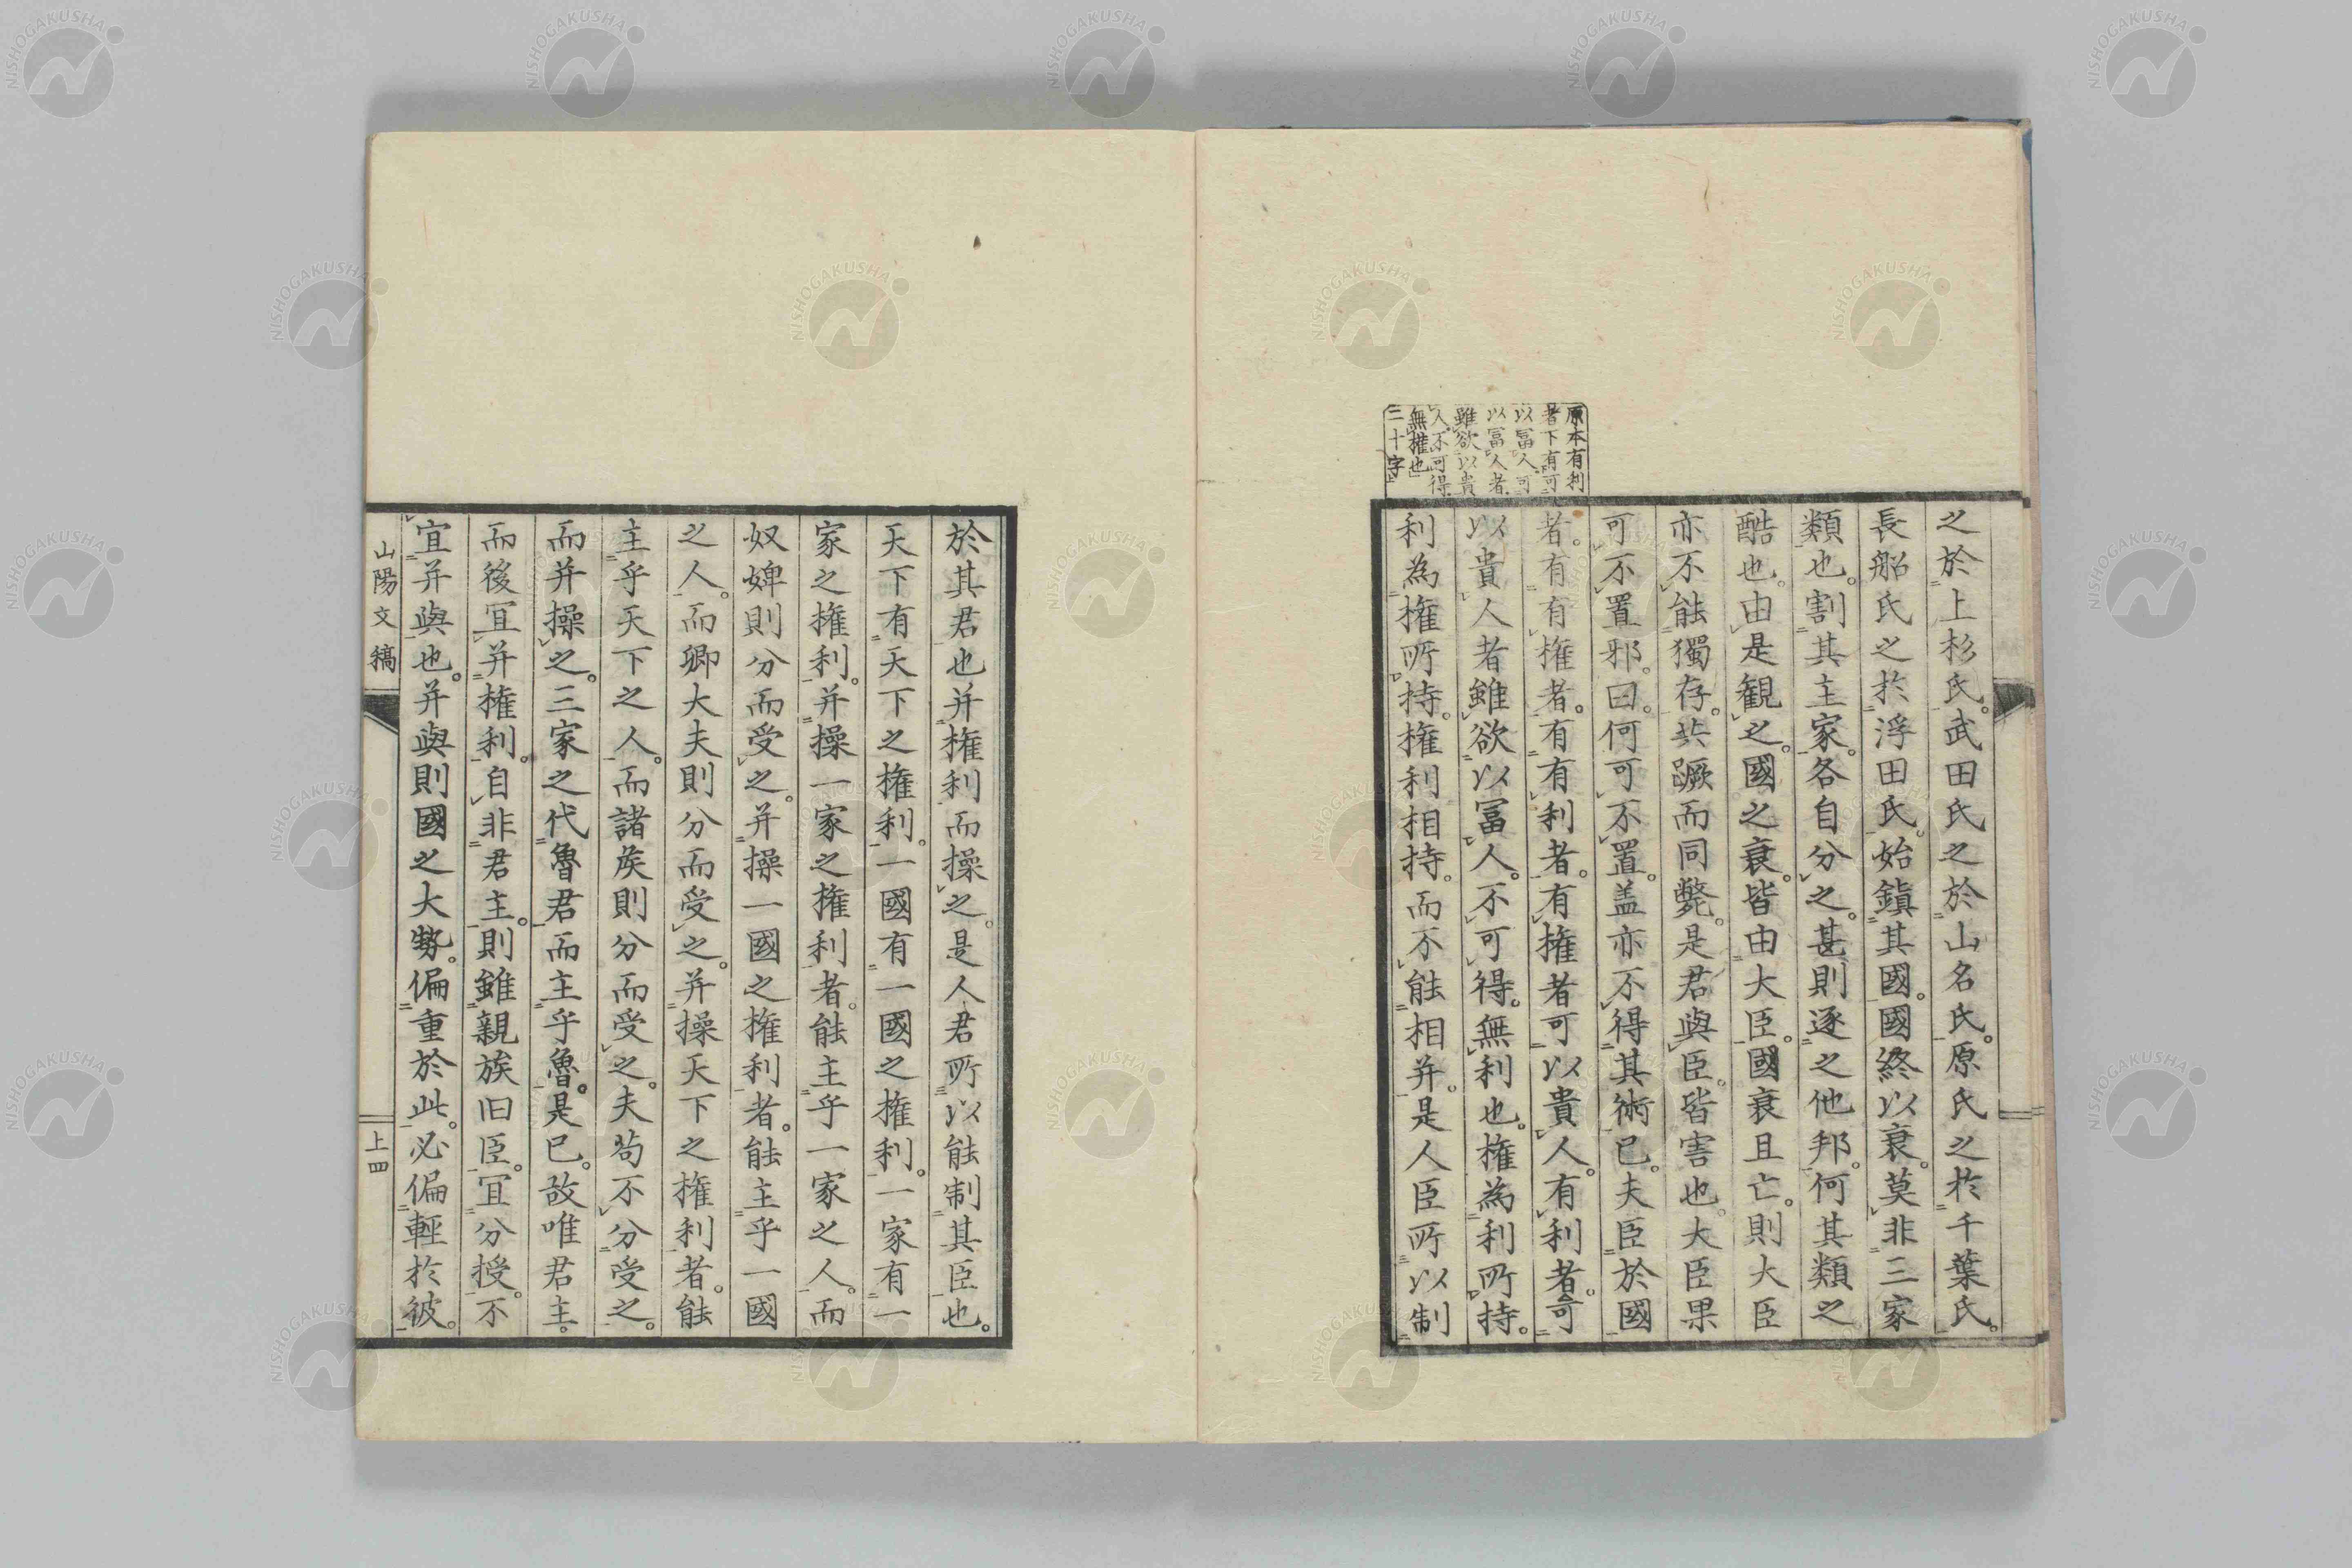 原本有利
者下有可
以冨人可
以冨人者
雖欲以貴
人不可得
無権也
二十字
之於上杉氏。武田氏之於山名氏。原氏之於千葉氏。
長船氏之於浮田氏。始鎮其國。國終以衰。莫非三家
類也。割其主家。各自分之。甚則逐之他邦。何其類之
酷也。由是観之。國之衰。皆由大臣。國衰且亡。則大臣
亦不能獨存。共蹶而同斃。是君與臣。皆害也。大臣果
可不置邪。曰。何可不置。盖亦不得其術已。夫臣於國
者。有有権者。有有利者。有権者可以貴人。有利者。可
以貴人者雖欲以冨人。不可得。無利也。権為利所持。
利為権所持。権利相持。而不能相并。是人臣所以制
於其君也并権利而操之。是人君所以能制其臣也。
天下有天下之権利。一國有一國之権利。一家有一
家之権利。并操一家之権利者。能主乎一家之人。而
奴婢則分而受之。并操一國之権利者。能主乎一國
之人。而卿大夫則分而受之。并操天下之権利者。能
主乎天下之人。而諸矦則分而受之。夫茍不分受之。
而并操之。三家之代魯君而主乎魯。是已。故唯君主。
而後冝并権利。自非君主。則雖親族旧臣。冝分授。不
冝并與也。并與則國之大勢。偏重於此。必偏輕於彼。
山陽文稿
上四
NISHOGAKUSHA